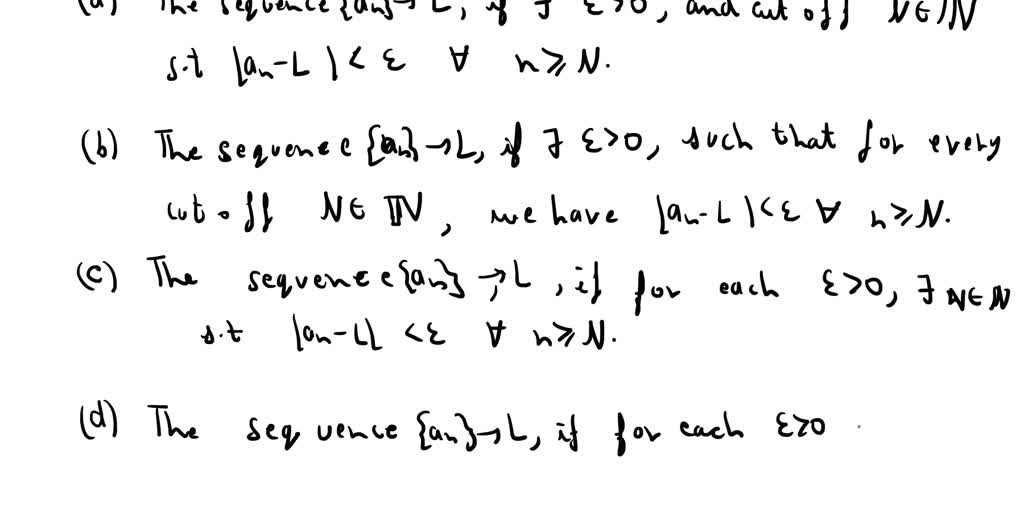 (a) The sequence {an} → L, if ∃ ε>0, and cut off N∈ℕ
s.t |an-L| < ε ∀ n≥N.
(b) The sequence {an} → L, if ∃ ε>0, such that for every
cut off N∈ ℕ, we have |an-L| < ε ∀ n≥N.
(c) The sequence {an} → L, if for each ε>0, ∃ N∈ℕ
s.t |an-L| < ε ∀ n≥N.
(d) The sequence {an} → L, if for each ε>0